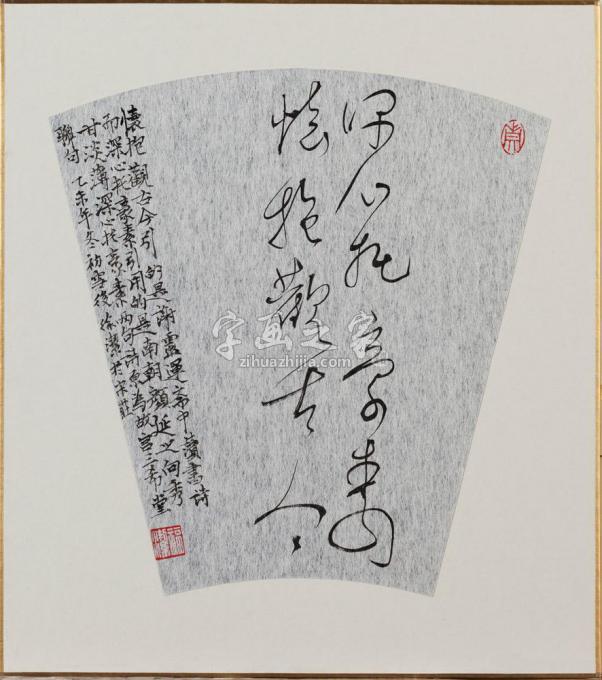 深心托豪素
懷抱觀古今
懷抱觀古今引的是謝靈運齋中讀書詩
而深心托豪素引用的是南朝顏延之向秀
甘淡薄深心托豪素兩句詩原為故宮三希堂
聯句 乙未年冬初雪後徐潔於宋莊
字画之家
zihuazhijia.com